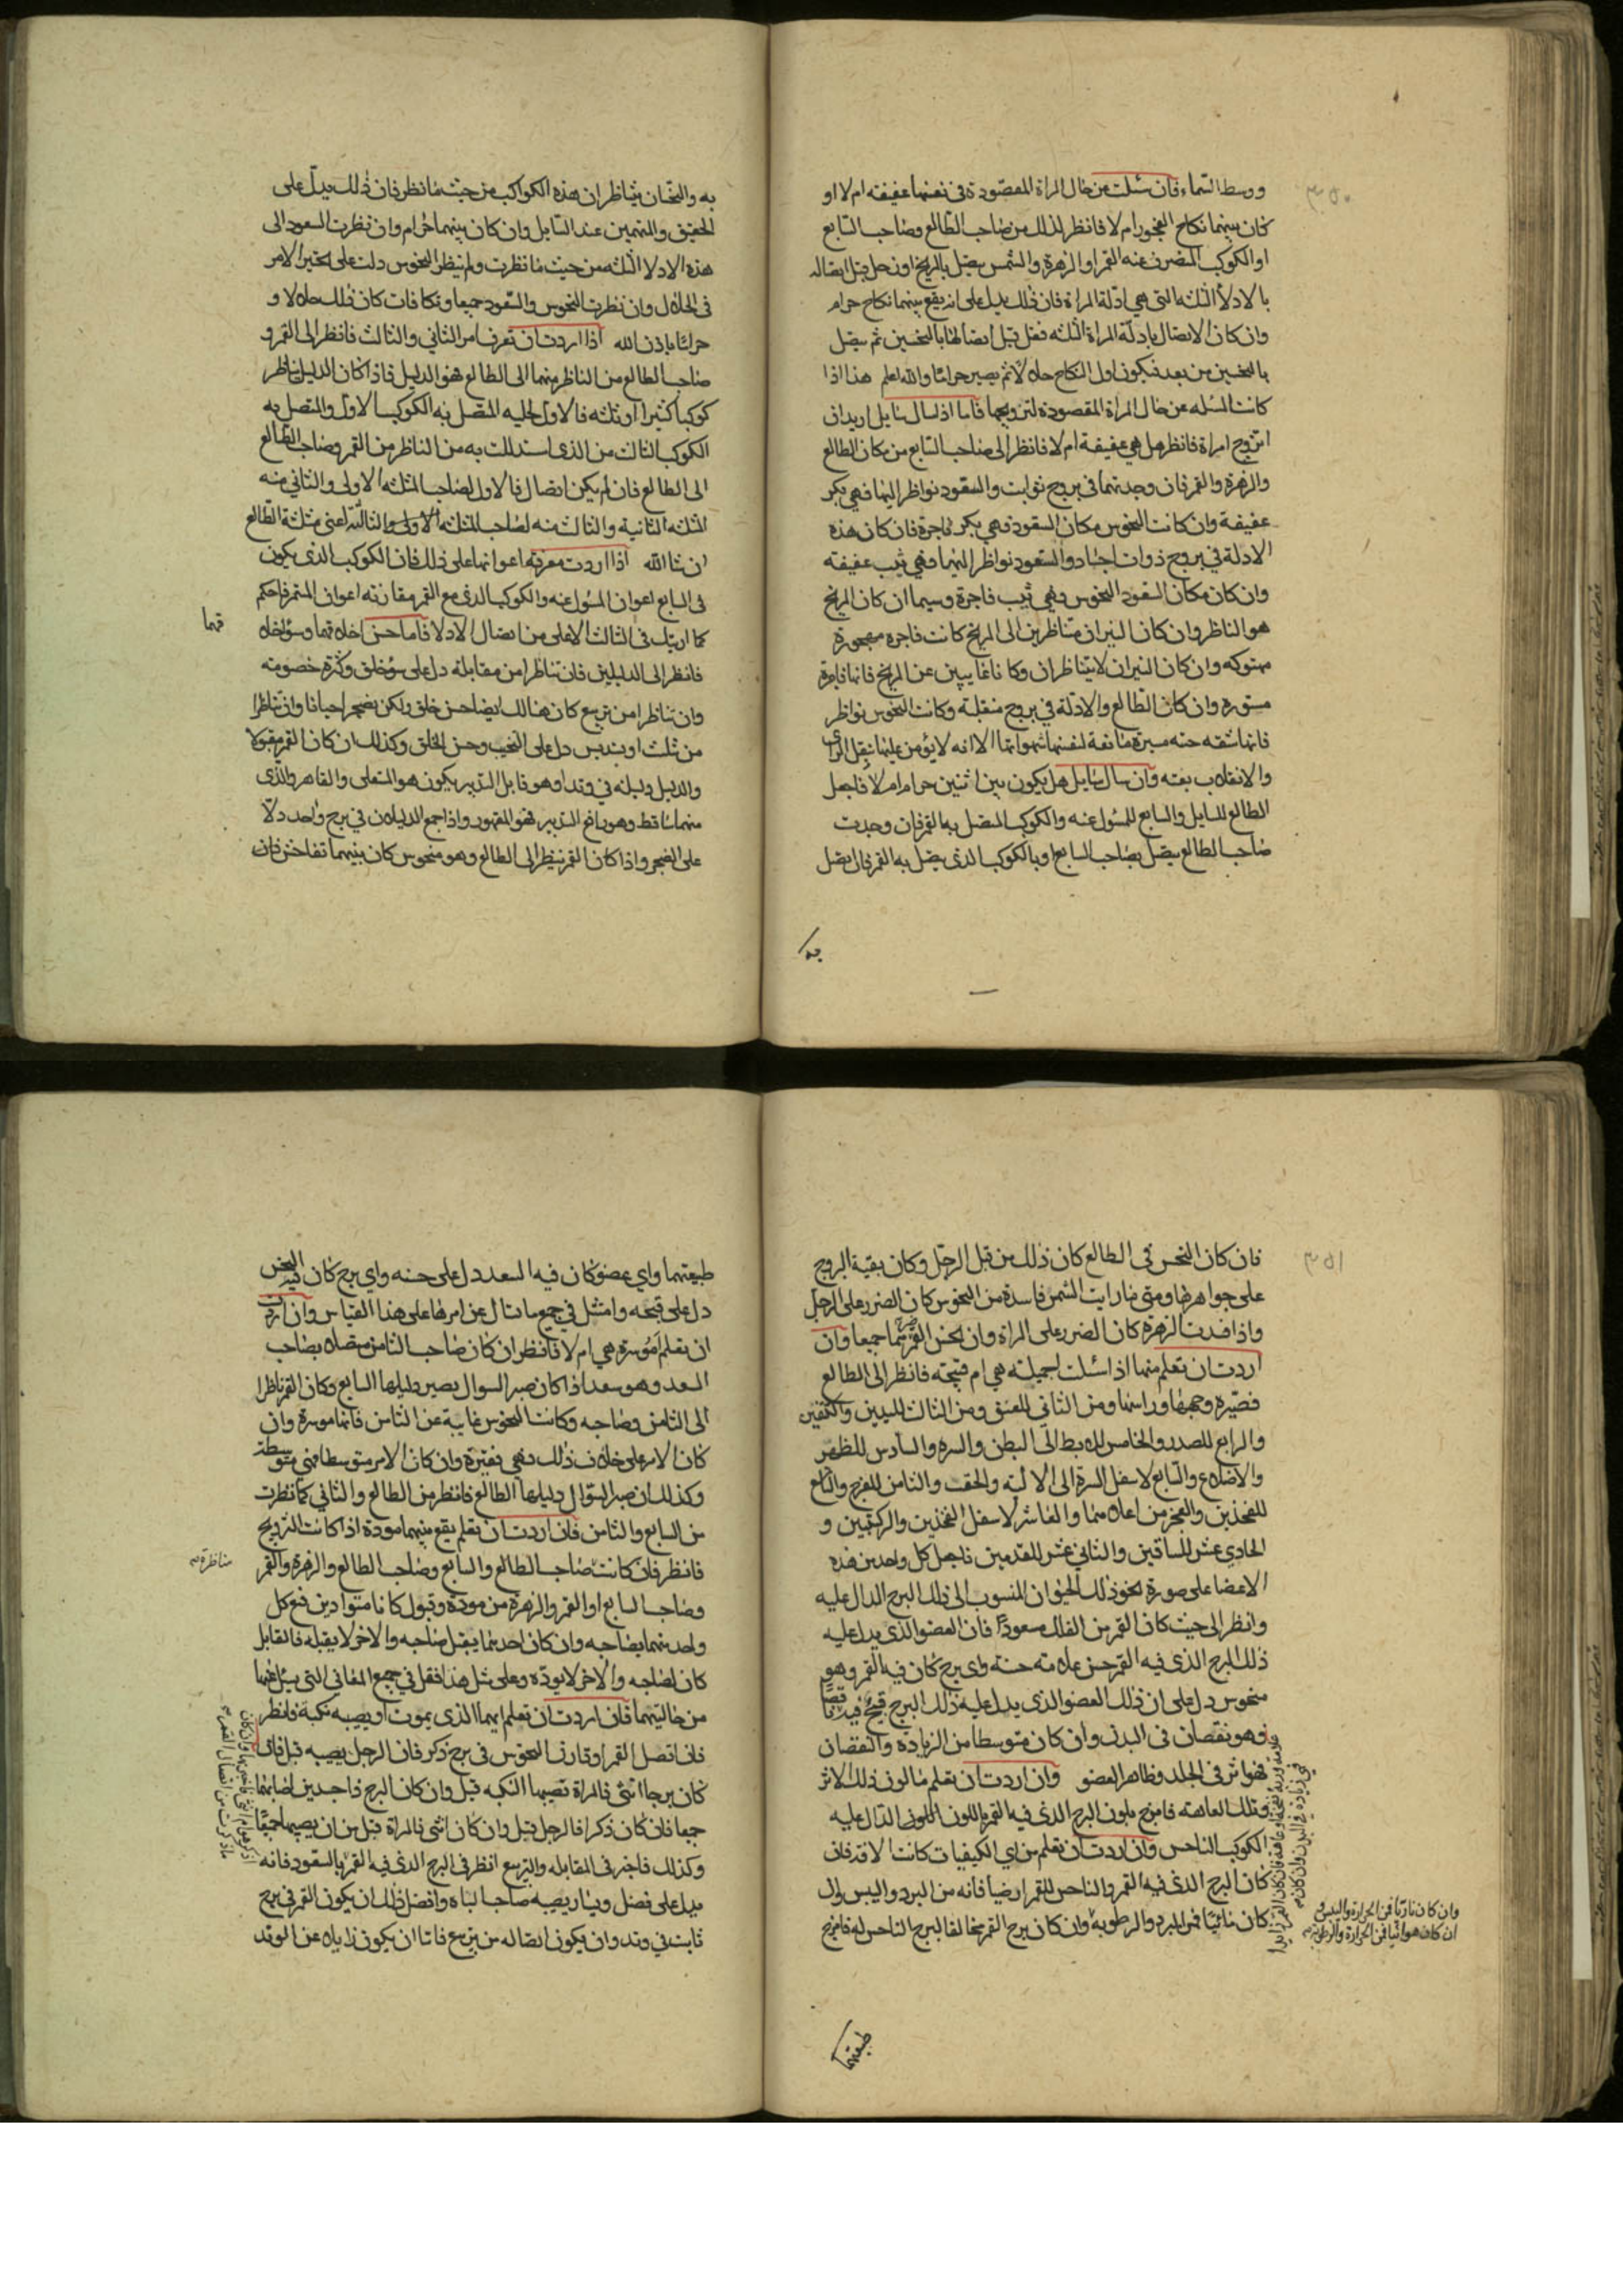 ووسط السماء فان سئلت عن حال المراة المقصودة في نفسها عفيفه ام لا او
كان بينهما نكاح الفجور ام لا فانظر لذلك من صاحب الطالع وصاحب السابع
او الكوكب المنصرف عنه القمر او الزهرة والشمس يتصل بالمريخ او زحل قبل اتصاله
بالادلا الثلثه التي هي ادلة المراة فان ذلك يدل على انه يقع بينهما نكاح حرام
وان كان الاتصال بادلة المراة الثلثه فقل قبل اتصالها بالنحسين ثم يتصل
بالنحسين من بعد فيكون اول النكاح حلالا ثم يصير حراما والله اعلم هذا اذا
كانت المسله عن حال المراة المقصودة لتزويجها فاما اذا سال سايل اريد ان
اتزوج امراة فانظر هل هي عفيفة ام لا فانظر الى صاحب السابع من مكان الطالع
والزهرة والقمر فان وجدتهما في بروج ثوابت والسعود نواظر اليها فهي بكر
عفيفة وان كانت النحوس مكان السعود فهي بكر فاجرة فان كان هذه
الادلة في بروج ذوات اجساد والسعود نواظر اليها فهي ثيب عفيفه
وان كان مكان السعود النحوس فهي ثيب فاجرة وسيما ان كان المريخ
هو الناظر وان كان النيران متناظرين الى المريخ كانت فاجره مجهورة
مهتوكه وان كان النيران لا يتناظران وكانا غايبين عن المريخ فانها فاجرة
مستورة وان كان الطالع والادلة في بروج منقلبة وكانت النحوس نواظر
فانها شقه مانعة لنفسها شهواتها الا انه لا يؤمن عليها نقل الراى
والانقلاب بغته وان سال سايل هل يكون بين اثنين حرام ام لا فاجعل
الطالع للسايل والسابع للمسول عنه والكوكب المتصل به القمر فان وجدت
صاحب الطالع يتصل بصاحب السابع او بالكوكب الذي يتصل به القمر فان اتصل
به
به والنحسان يتناظران هذه الكواكب من حيث ما نظر فان ذلك يدل على
التحقيق والتهمين عند السايل وان كان بينهما حرام وان نظرت السعود الى
هذه الادلا الثلثه من حيث ما نظرت ولم ينظر النحوس دلت على تخير الامر
في الحلال وان نظرت النحوس والسعود جميعا وتكافات كان ذلك حلالا و
حراما باذن الله اذا اردت ان تعرف امر الثاني والثالث فانظر الى القمر و
صاحب الطالع من الناظر منهما الى الطالع فهو الدليل فاذا كان الدليل يناظر
كوكبا كثيرا او ثلثه فالاول لحليه المتصل به الكوكب الاول والمتصل به
الكوكب الثالث من الذي استدللت به من الناظر من القمر وصاحب الطالع
الى الطالع فان لم يكن اتصال فالاول لصاحب المثلثه الاولى والثاني منه
المثلثه الثانيه والثالث منه لصاحب المثلثه الاولى والثالثة اعني مثلثة الطالع
ان شا الله اذا اردت معرفة اعوانهما على ذلك فان الكوكب الذي يكون
في السابع اعوان المسول عنه والكوكب الذي مع القمر مقارنته اعوان القمر فاحكم
كما اريتك في الثالث الاعلى من اتصال الادلا فاما حسن اخلاقهما وسؤ اخلاقه
قهما
فانظر الى الدليلين فان تناظرا من مقابلة دل على سؤ خلق وكثرة خصومته
وان تناظرا من تربيع كان هنالك ايضا حسن خلق ولكن يضجر احيانا وان تناظرا
من تثليث او تسديس دل على التحبب وحسن الخلق وكذلك ان كان القمر مقبولا
والدليل وليانه في وتد او هو قابل التدبير يكون هو المتعلى والقاهر والذي
منهما ساقط وهو رافع التدبير فهو المقهور واذا جمع الدليلان في برج واحد دلا
على الضجر واذا كان القمر ينظر الى الطالع وهو منحوس كان بينهما تفاخر فان
فان كان النحس في الطالع كان ذلك من قبل الرجل وكان بقية البروج
على جواهرها ومتى ما رايت الشمس فاسدة من النحوس كان الضرر على الرجل
واذا فسدت الزهرة كان الضرر على المراة وان نحس القمر ضرهما جميعا وان
اردت ان تعلم منها اذا سئلت اجميلة هي ام قبيحة فانظر الى الطالع
فصيره وجهها وراسها ومن الثاني للعنق ومن الثالث لليدين والكتفين
والرابع للصدر والخامس للابط الى البطن والسره والسادس للظهر
والاضلاع والسابع لاسفل السرة الى الالية والحقف والثامن للفرج والتاسع
للفخذين والعجز من اعلاهما والعاشر لاسفل الفخذين والركبتين و
الحادي عشر للساقين والثاني عشر للقدمين فاجعل كل واحد من هذه
الاعضا على صورة نحو ذلك الحيوان المنسوب الى ذلك البرج الدال عليه
وانظر الى حيث كان القمر من الفلك مسعودا فان العضو الذي يدل عليه
ذلك البرج الذي فيه القمر حسن علامته حسنة واي برج كان فيه القمر وهو
منحوس دل على ان ذلك العضو الذي يدل عليه ذلك البرج قبيح فيه
وهو نقصان في البدن وان كان متوسطا من الزيادة والنقصان
فهو اثر في الجلد وظاهر العضو وان اردت ان تعلم ما لون ذلك الاثر
وتلك العاهته فامزج بلون البرج الذي فيه القمر باللون اللون الدال عليه
الكوكب الناحس وان اردت ان تعلم من اي الكيفيات كانت الافة فان
كان البرج الذي فيه القمر والناحس للقمر ارضيا فانه من البرد واليبس وان
كان مائيا فمن البرد والرطوبة وان كان برج القمر مخالفا لبرج الناحس له فامزج
وان كان ناريا فمن الحرارة واليبس و
ان كان هوائيا فمن الحرارة والرطوبة
طبيعتهما
طبيعتهما واي عضو كان فيه السعد دل على حسنه واي برج كان فيه النحس
دل على قبحه وامثل في جميع ما تسال عن امرها على هذا القياس وان اردت
ان تعلم اموسرة هي ام لا فانظر ان كان صاحب الثامن متصلا بصاحب
السعد وهو سعد اذا كان صير السوال يصير دليلها السابع وكان القمر ناظرا
الى الثامن وصاحبه وكانت النحوس غايبة عن الثامن فانها موسرة وان
كان الامر على خلاف ذلك فهي فقيرة وان كان الامر متوسطا فهي متوسطة
وكذلك ان صير السؤال دليلها الطالع فانظر من الطالع والثاني كما نظرت
من السابع والثامن فان اردت ان تعلم يقع بينهما مودة اذا كانت التزويج
فانظر فان كانت صاحب الطالع والسابع وصاحب الطالع والزهرة والقمر
مناظرة
وصاحب السابع او القمر والزهرة من مودة وقبول كانا متوادين مع كل
واحد منهما بصاحبه وان كان احدهما يقبل صاحبه والاخر لا يقبله فالقابل
كان لصاحبه والاخر لا يودّه وعلى مثل هذا فقل في جميع المعاني التي يسل عنها
من حاليتهما فان اردت ان تعلم ايهما الذي يموت او يصيبه نكبة فانظر
فان اتصل القمر او قارن النحوس في برج ذكر فان الرجل يصيبه قبل فان
كان برجا انثى فالمراة تصيبها النكبه قبل وان كان البرج ذا جسدين اصابتهما
جميعا فان كان ذكرا فالرجل قبل وان كان انثى فالمراة قبل من ان يصيبهما جميعا
وكذلك فاخبر في المقابله والتربيع انظر في البرج الذي فيه القمر بالسعود فانه
يدل على فضل ويسار يصيبه صاحب البناه وافضل ذلك ان يكون القمر في برج
ثابت في وتد وان يكون اتصاله من تربيع فاما ان يكون زايلا عن الوتد